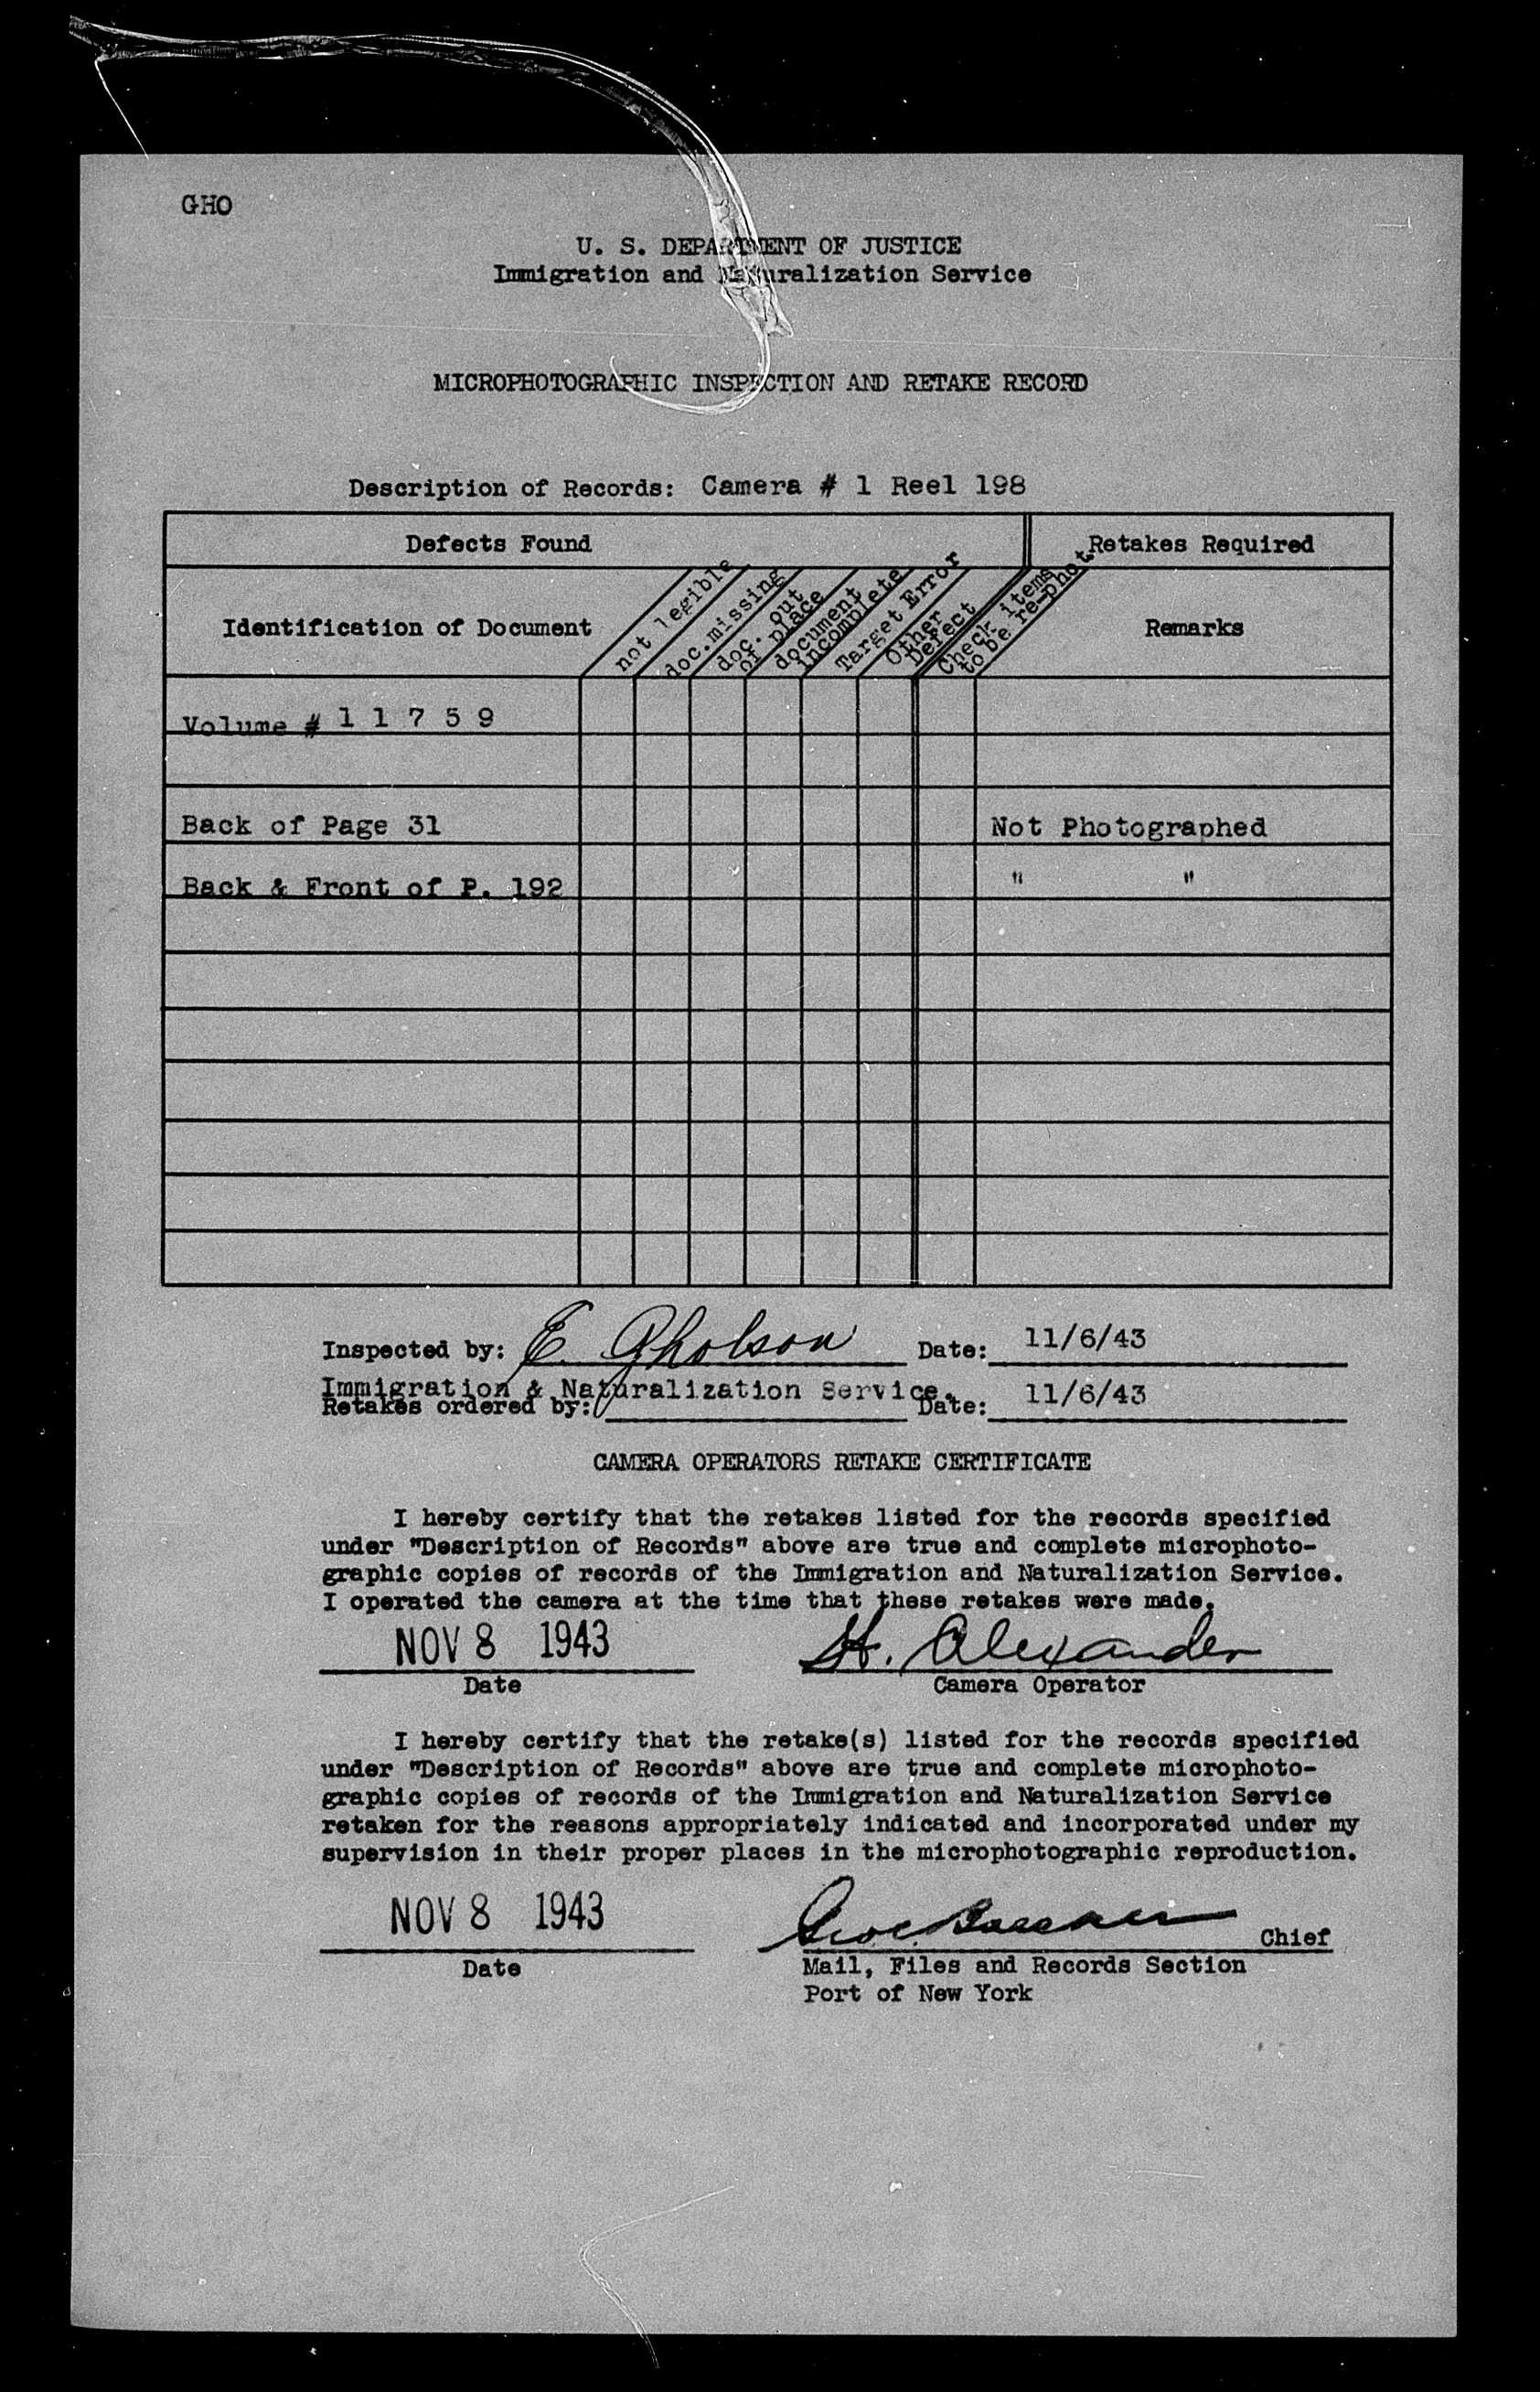 GHO
U. S. DEPARTMENT OF JUSTICE
Immigration and Naturalization Service
MICROPHOTOGRAPHIC INSPECTION AND RETAKE RECORD
Description of Records: Camera # 1 Reel 198
Defects Found
Retakes Required
Identification of Document
not legible
doc.missing
doc. out
of place
document
incomplete
Target Error
Other
Defect
Check items
to be re-phot.
Remarks
Volume # 1 1 7 5 9
Back of Page 31 Not Photographed
Back & Front of P. 192 " "
Inspected by: E. Gholson Date: 11/6/43
Immigration & Naturalization Service.
Retakes ordered by: Date: 11/6/43
CAMERA OPERATORS RETAKE CERTIFICATE
I hereby certify that the retakes listed for the records specified
under "Description of Records" above are true and complete microphoto-
graphic copies of records of the Immigration and Naturalization Service.
I operated the camera at the time that these retakes were made.
NOV 8 1943 H. Alexander
Date Camera Operator
I hereby certify that the retake(s) listed for the records specified
under "Description of Records" above are true and complete microphoto-
graphic copies of records of the Immigration and Naturalization Service
retaken for the reasons appropriately indicated and incorporated under my
supervision in their proper places in the microphotographic reproduction.
NOV 8 1943
Chief
Date Mail, Files and Records Section
Port of New York